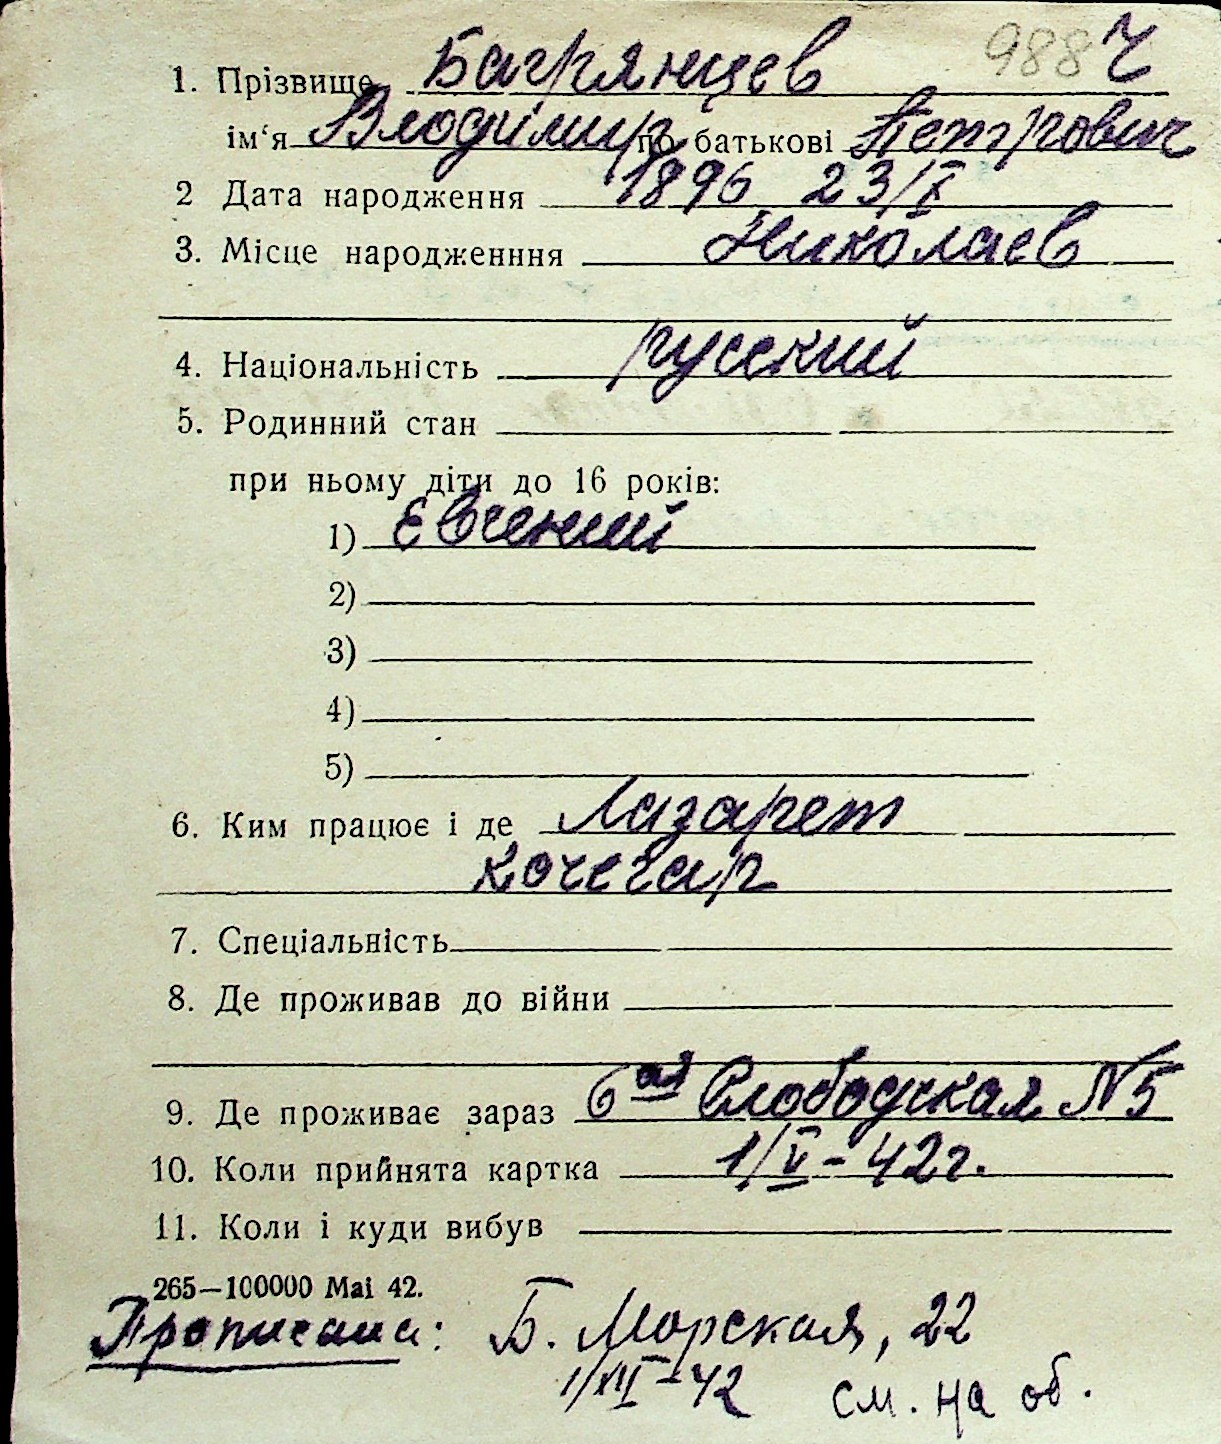 988 Ч
1. Прізвище Багрянцев
ім‘я Владимир по батькові Петрович
2 Дата народження 1896 23/X
3. Місце народженння Николаев
4. Національність русский
5. Родинний стан
при ньому діти до 16 років:
1) Евгений
2)
3)
4)
5)
6. Ким працює і де Лазарет
кочегар
7. Спеціальність
8. Де проживав до війни
9. Де проживає зараз 6ая Слободская №5
10. Коли прийнята картка 1/V-42г.
11. Коли і куди вибув
265—100000 Mai 42.
Прописана: Б. Морская, 22
-42 см. на об.